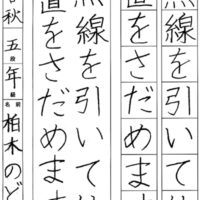 線を引いて
置をさだめま
線を引いて
置をさだめま
秋 五段 年級 名前 柏木のど